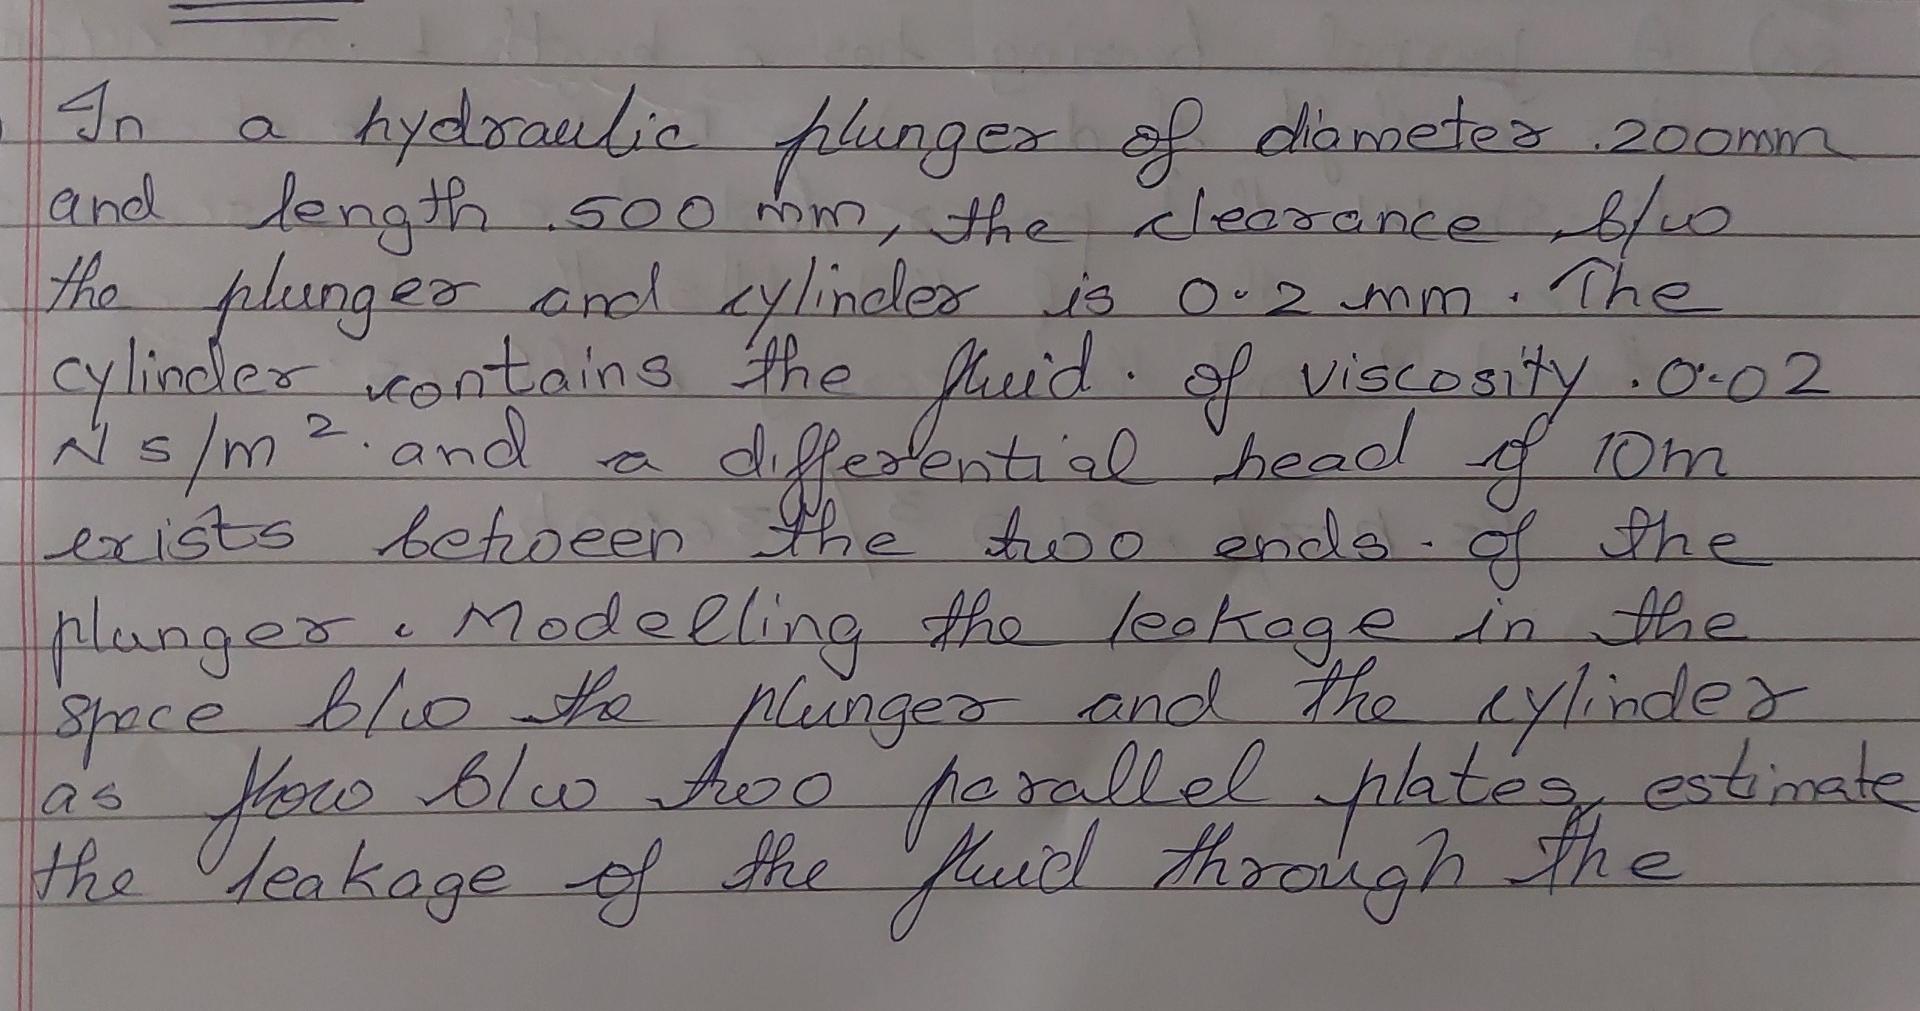 In a hydraulic plunger of diameter 200mm
and length 500 mm, the clearance b/w
the plunger and cylinder is 0.2 mm. The
cylinder contains the fluid of viscosity 0.02
Ns/m² and a differential head of 10m
exists between the two ends of the
plunger. Modelling the leakage in the
space b/w the plunger and the cylinder
as flow b/w two parallel plates, estimate
the leakage of the fluid through the